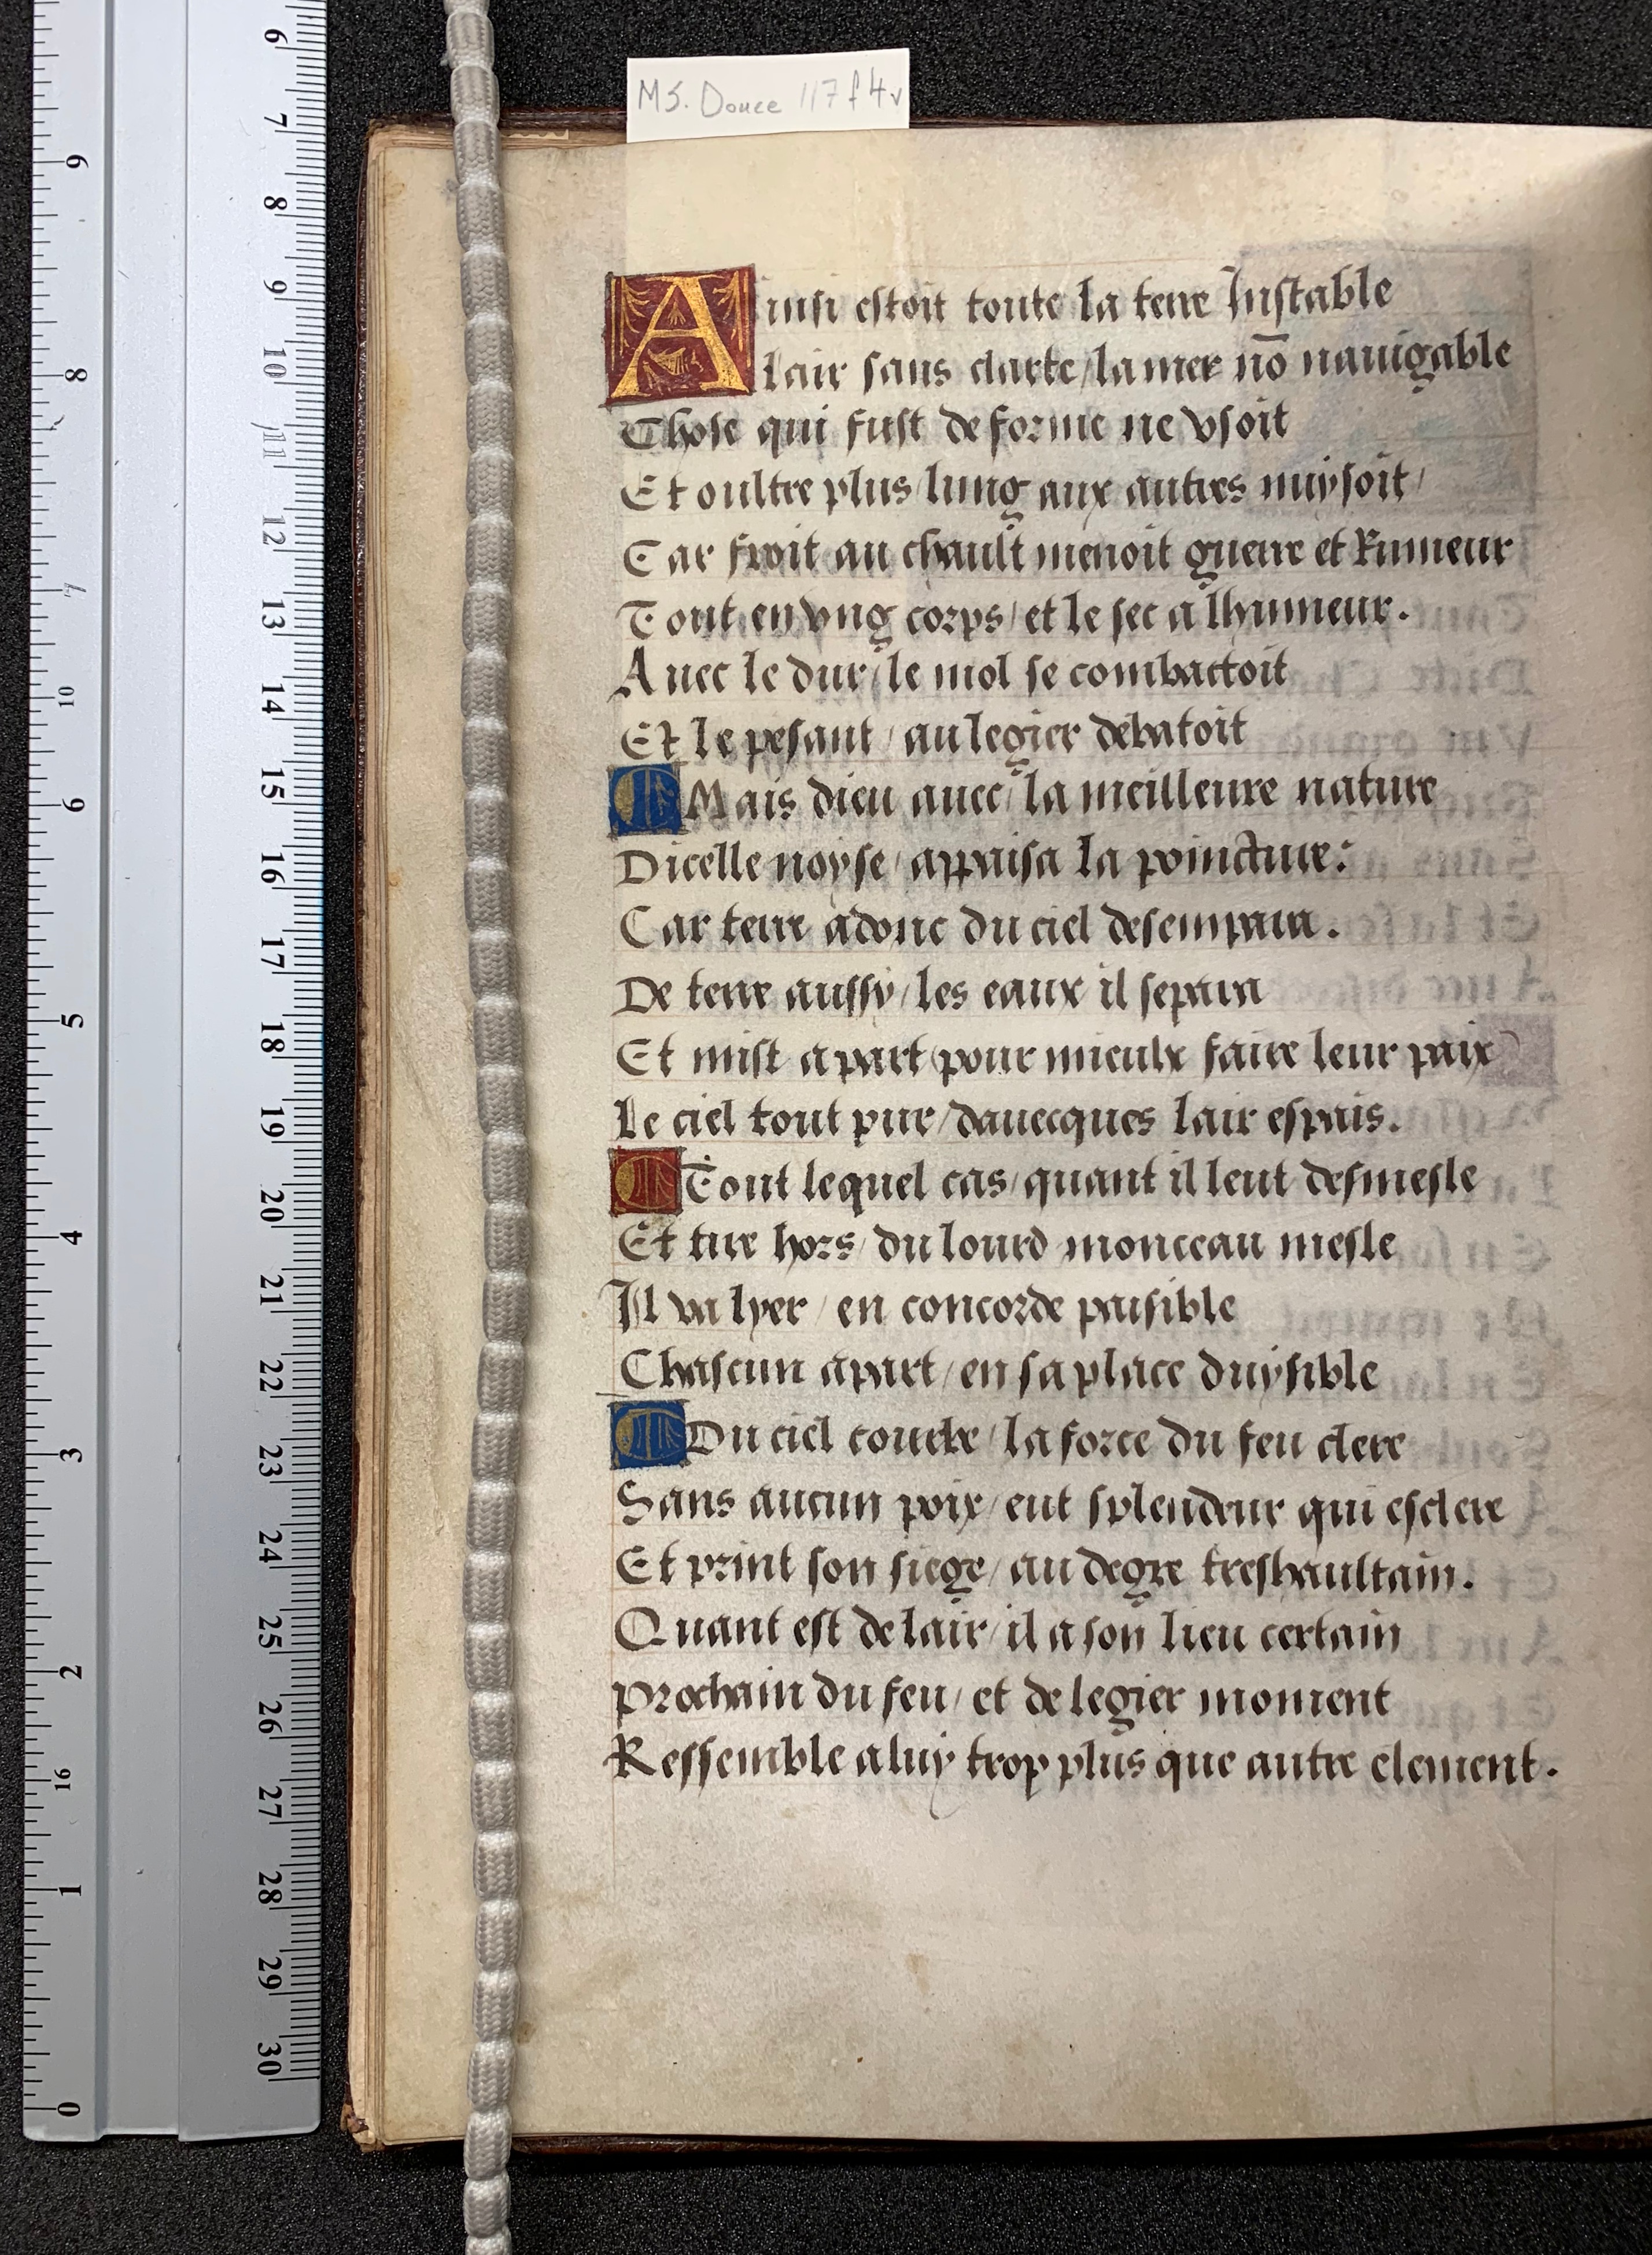 MS. Douce 117 f 4v
Ainsi estoit toute la terre Instable
lair sans clarte / la mer nō nauigable
Chose qui fust de forme ne vsoit
Et oultre plus / lung aux autres nuysoit /
Car froit au chault menoit guerre et Rumeur
Tout en vng corps / et le sec a lhumeur.
Auec le dur / le mol se combactoit
Et le pesant / au legier debatoit
Mais dieu auec / la meilleure nature
Dicelle noyse / appaisa la poincture:
Car terre adonc du ciel desempara.
De terre aussy / les eaux il separa
Et mist a part (pour mieulx faire leur paix)
Le ciel tout pur / dauecques lair espais.
Tout lequel cas / quant il leut desmesle
Et tire hors / du lourd monceau mesle
Il va lyer / en concorde paisible
Chascun apart / en sa place duysible
Du ciel courbe / la force du feu clere
Sans aucun poix / eut splendeur qui esclere
Et print son siege / au degre treshaultain.
Quant est de lair / il a son lieu certain
prochain du feu / et de legier moment
Ressemble a luy trop plus que autre element.
6
7
8
9
10
11
12
13
14
15
16
17
18
19
20
21
22
23
24
25
26
27
28
29
30
9
8
7
10
6
5
4
3
2
16
1
0